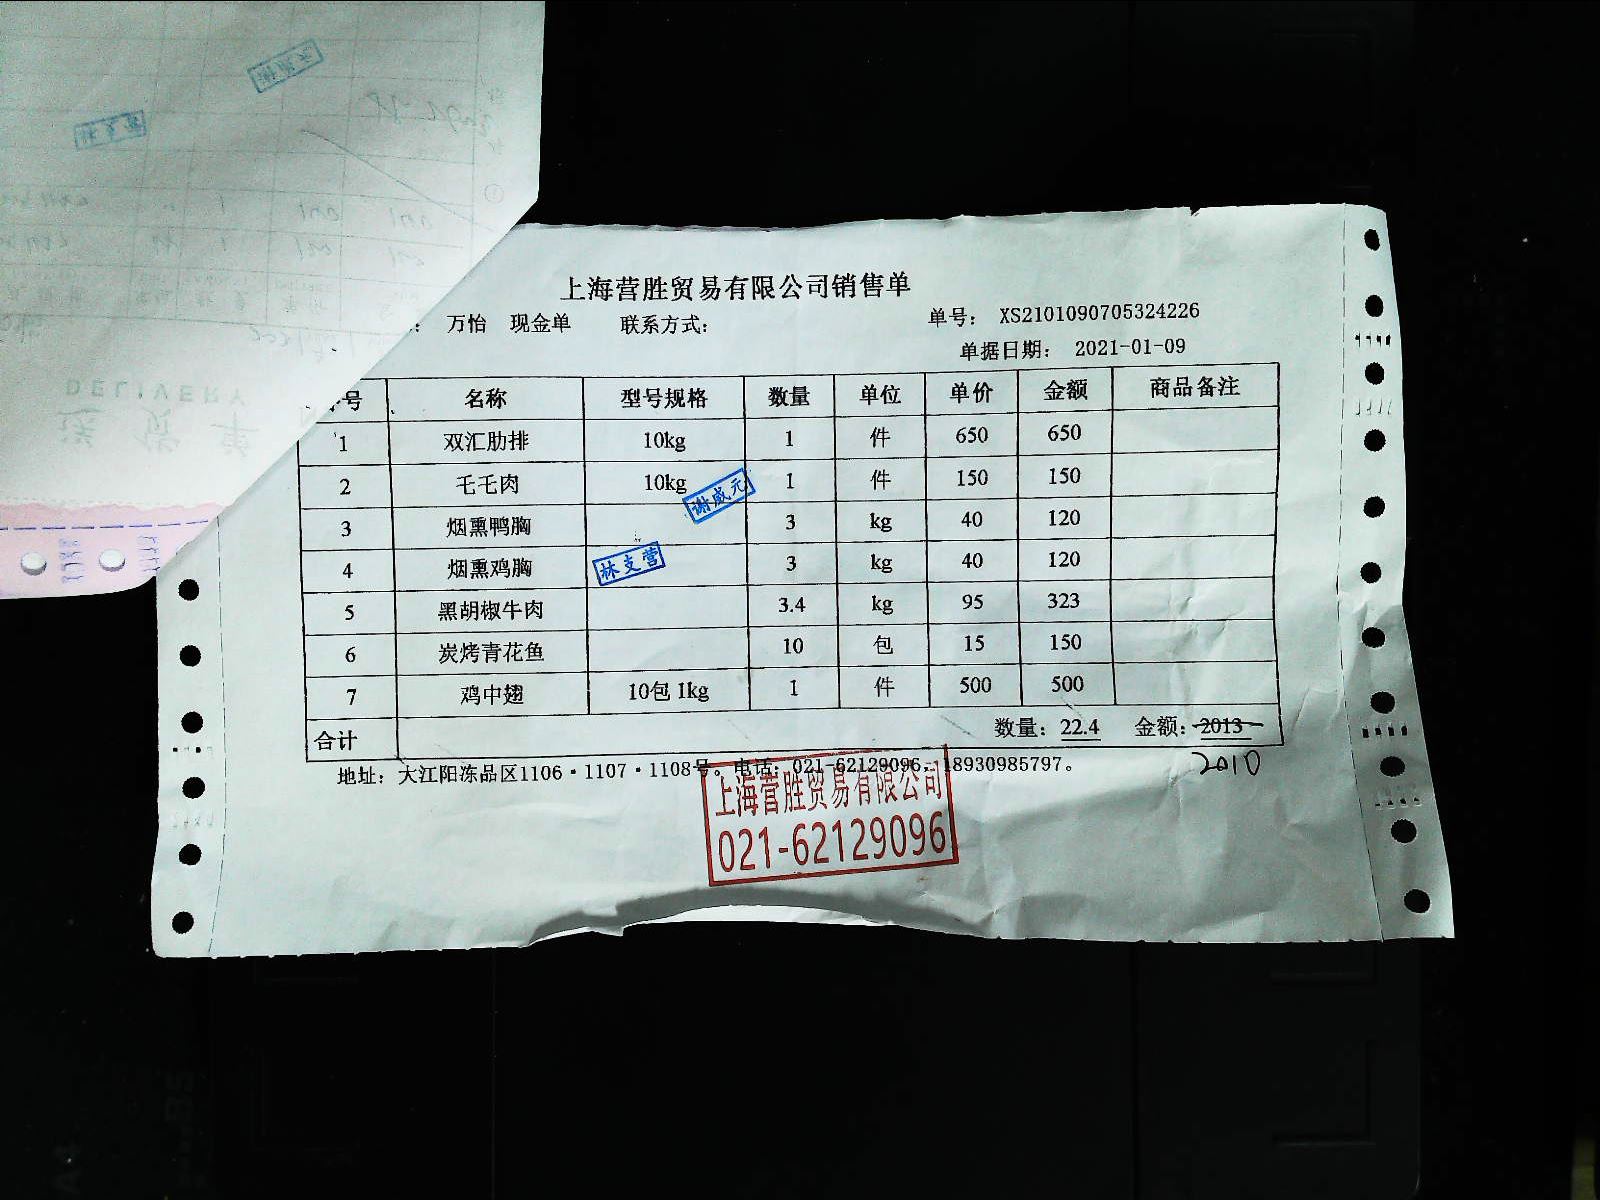 上海营胜贸易有限公司销售单
: 万怡 现金单 联系方式: 单号: XS2101090705324226
单据日期: 2021-01-09
号 名称 型号规格 数量 单位 单价 金额 商品备注
1 双汇肋排 10kg 1 件 650 650
2 毛毛肉 10kg 1 件 150 150
谢威元
3 烟熏鸭胸 3 kg 40 120
4 烟熏鸡胸 3 kg 40 120
林支营
5 黑胡椒牛肉 3.4 kg 95 323
6 炭烤青花鱼 10 包 15 150
7 鸡中翅 10包 1kg 1 件 500 500
合计 数量: 22.4 金额: 2013
2010
地址: 大江阳冻品区1106·1107·1108号。电话: 021-62129096, 18930985797。
上海营胜贸易有限公司
021-62129096
DELIVERY
送货单
林支营